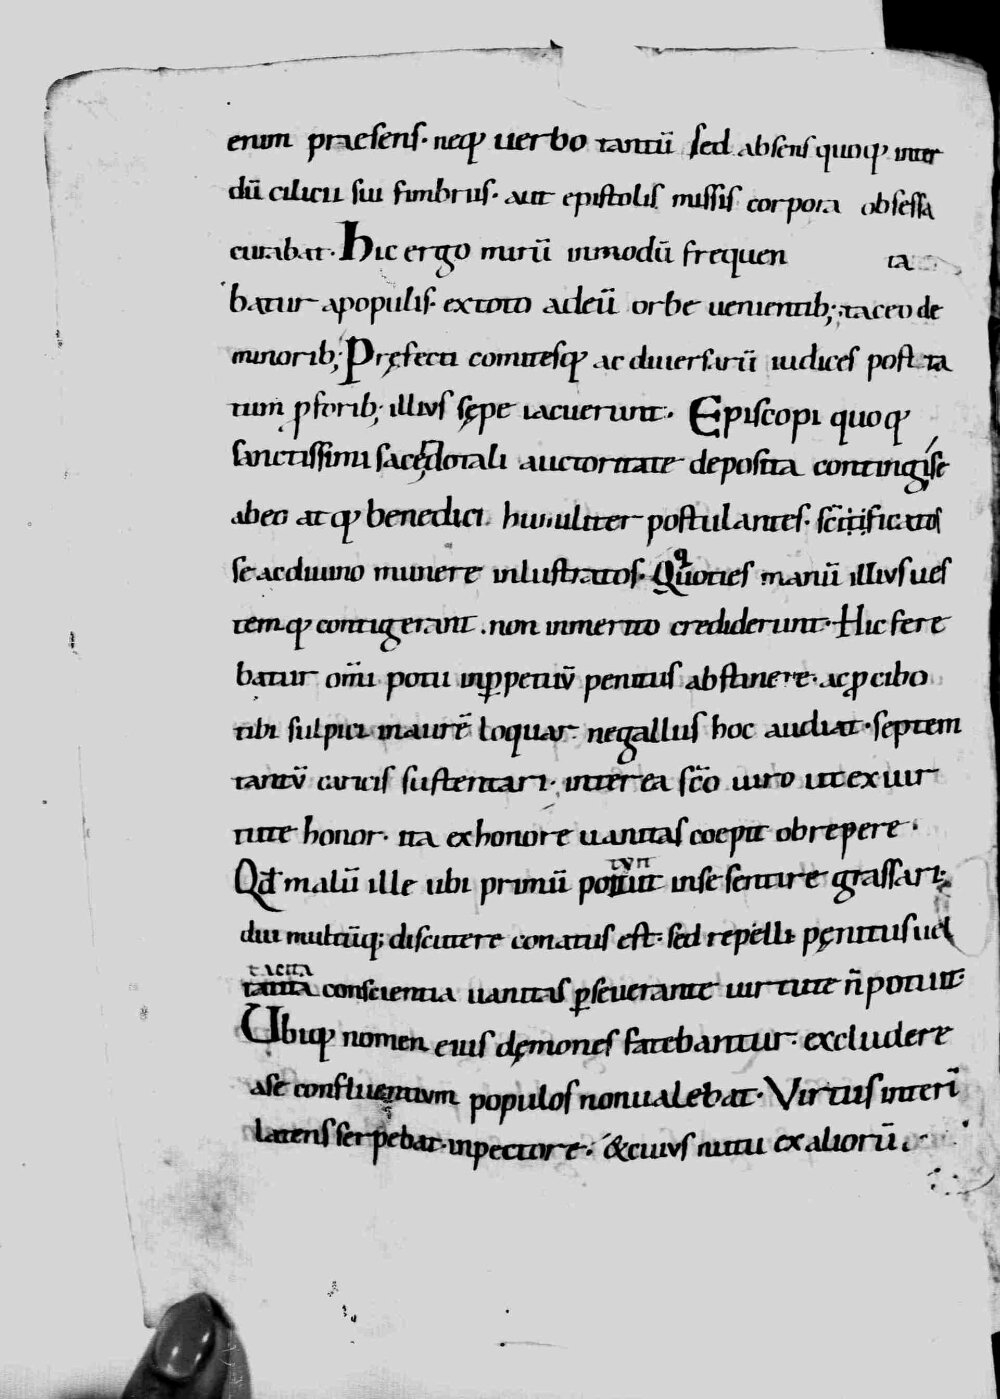 enim praesens· neq; uerbo tantū sed absens quoq; inter
dū cilicii sui fimbriis· aut epistolis missis corpora obsessa
curabat· Hic ergo mirū inmodū frequen ta
batur apopulis· extoto adeū orbe uenientib; taceo de
minorib; Pręfecti comitesq; ac diuersarū iudices post ta
tum ꝑforib; illius sępe iacuerunt· Episcopi quoq;
sanctissimi sacerdotali auctoritate deposita contingise
abeo at q; benedici humiliter postulantes· sc̄ificatos
se acdiuino munere inlustratos· Quoties manū illius ues
temq; contigerant· non inmerito crediderunt· Hic fere
batur om̄i potu inꝑpetuū penitus abstinere· acꝓcibo
tibi sulpici inaurē loquar negallus hoc audiat· septem
tantū caricis sustentari· interea sc̄o uiro ut exuir
tute honor· ita exhonore uanitas coepit obrepere·
Qd̄ malū ille ubi primū potuit inse sentire grassari·
diu multūq; discutere conatus est· sed repelli pęnitus uel
tacita
tanta conscientia uanitas ꝑseuerante uirtute n̄ potuit·
Ubiq; nomen eius dęmones fatebantur· excludere
ase confluentium populos nonualebat· Virtus interī
latens serpebat· inpectore· &cuius nutu ex aliorū